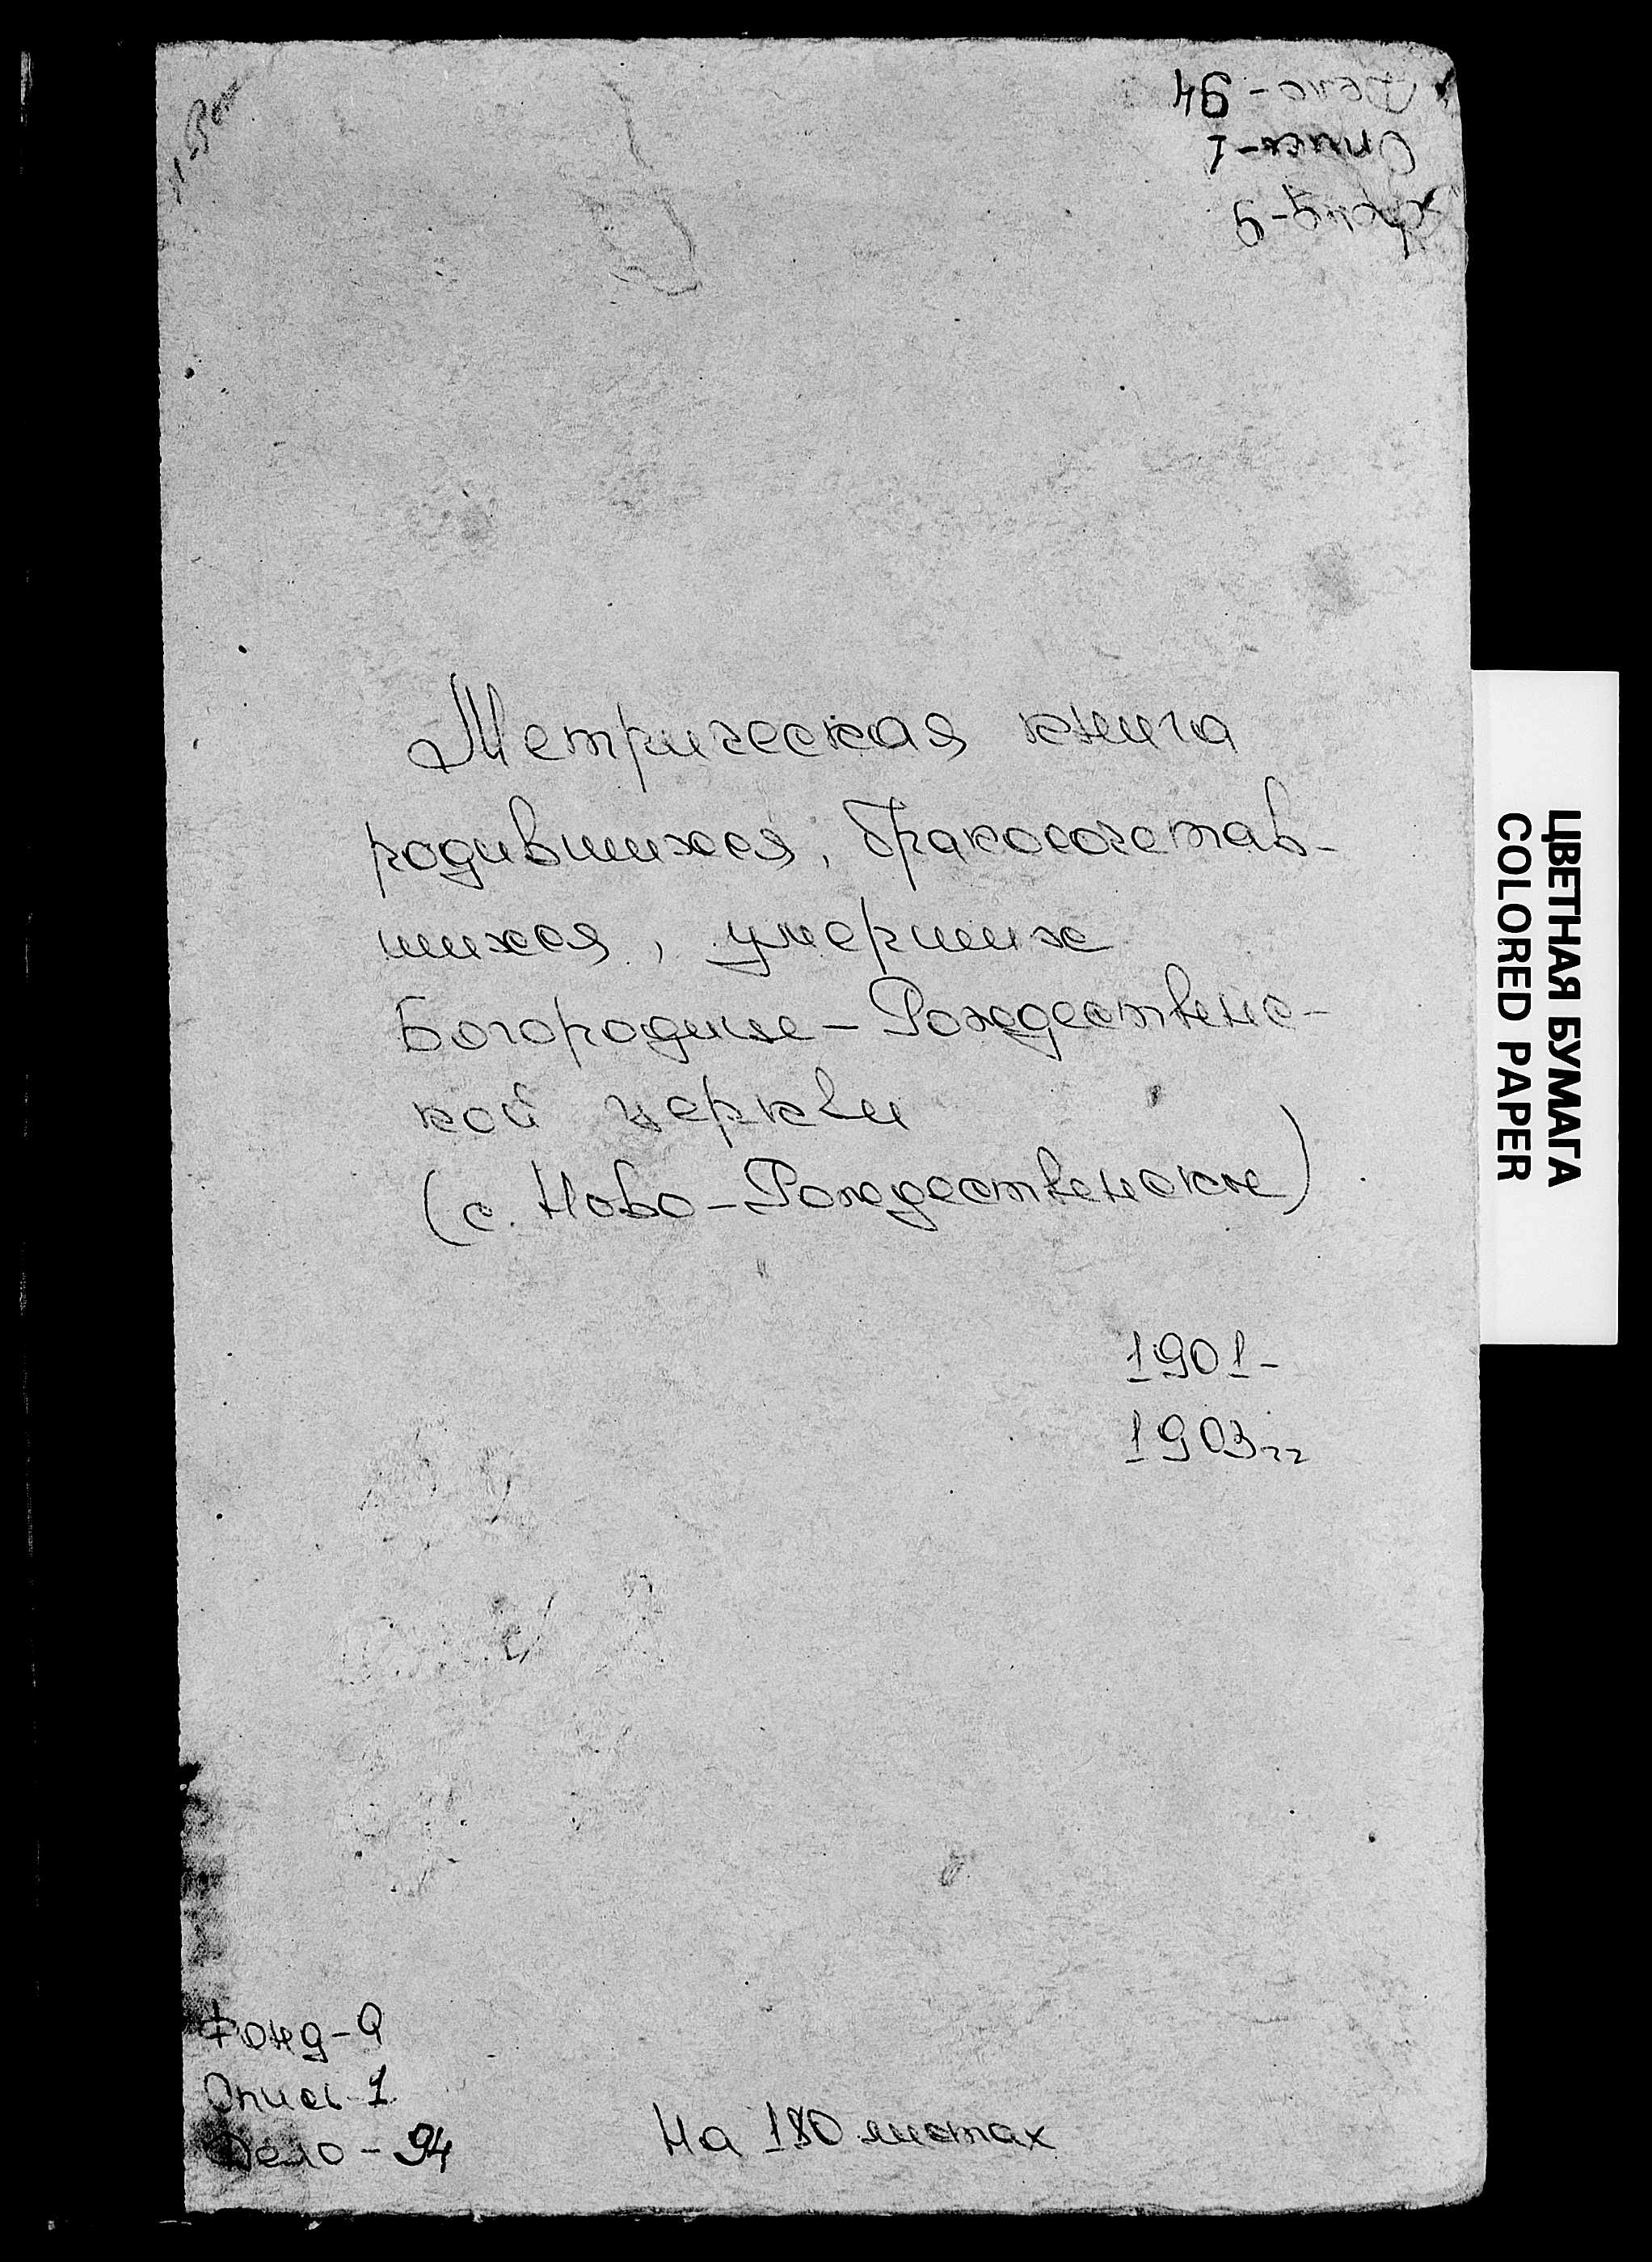 Дело - 94
Опись - 1
Фонд - 9
Метрическая книга
родившихся, бракосочетав-
шихся, умерших
Богородице - Рождественс-
кой церкви
(с. Ново - Рождественское)
1901 -
1903 гг
Фонд - 9
Опись - 1
Дело - 94
На 180 листах
ЦВЕТНАЯ БУМАГА
COLORED PAPER